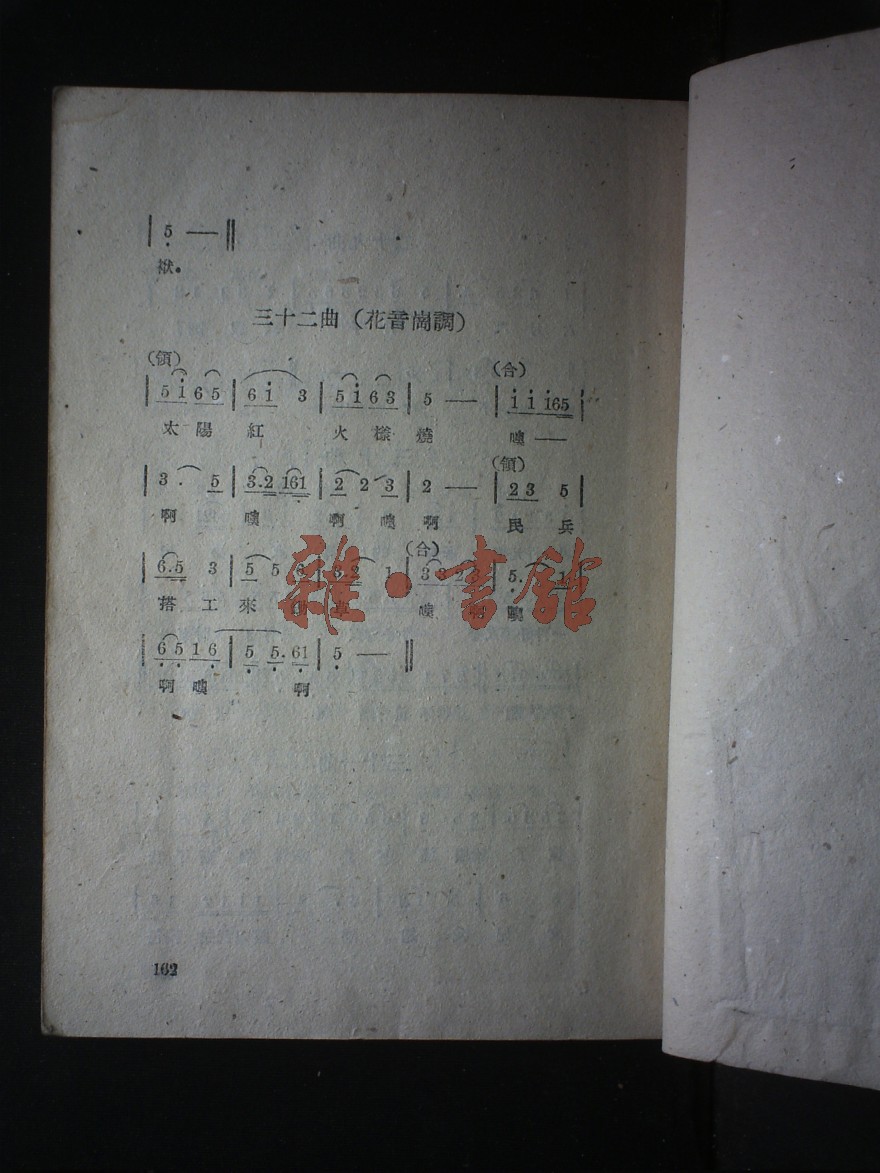 | 5 — ‖
袱。
三十二曲（花音崗調）
（領） （合）
| 5 i 6 5 | 6 i 3 | 5 i 6 3 | 5 — | i i i65 |
太 陽 紅 火 樣 燒 噢 —
（領）
| 3 . 5 | 3.2 161 | 2 2 3 | 2 — | 2 3 5 |
啊 噢 啊 噢 啊 民 兵
（合）
6.5 3 | 5 5
搭 工 來
5. 1 |
噢 啊 噢
6 5 1 6 | 5 5. 61 | 5 — ‖
啊 噢 啊
雜·書館
162